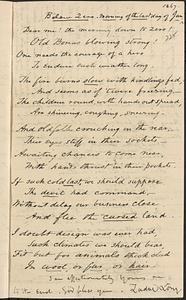 1867
Below Zero. Morning of the last day of Jan
Dear me! the mercury down to zero!
Old Boreas blowing strong,
One needs the courage of a hero
To endure such weather long.
The fire burns slow with kindlings fed,
And seems as if twere freezing
The children round, with hands out spread,
Are shivering, coughing, sneezing.
And old folks crouching in the rear,
Their eyes stiff in their sockets
Awaiting chances to come near,
With hands thrust in their pockets.
If such cold last, we should suppose
The devil had command,
Without delay our business close
And flee the cursed land.
I doubt design was ever had,
Such climates we should bear,
Fit but for animals thick clad
In wool, or fur, or hair.
to the end. God